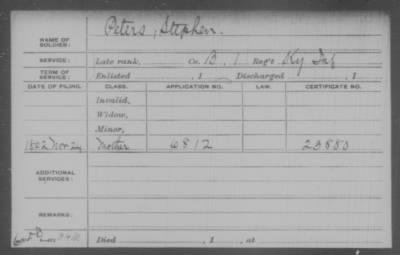 NAME OF SOLDIER: Peters, Stephen.
SERVICE: Late rank, Co. B, 1 Reg't Ky Inf
TERM OF SERVICE: Enlisted , 1 Discharged , 1
DATE OF FILING. CLASS. APPLICATION NO. LAW. CERTIFICATE NO.
Invalid,
Widow,
Minor,
1862 Nov 24 Mother 6812 23880
ADDITIONAL SERVICES:
REMARKS:
Died , 1 , at